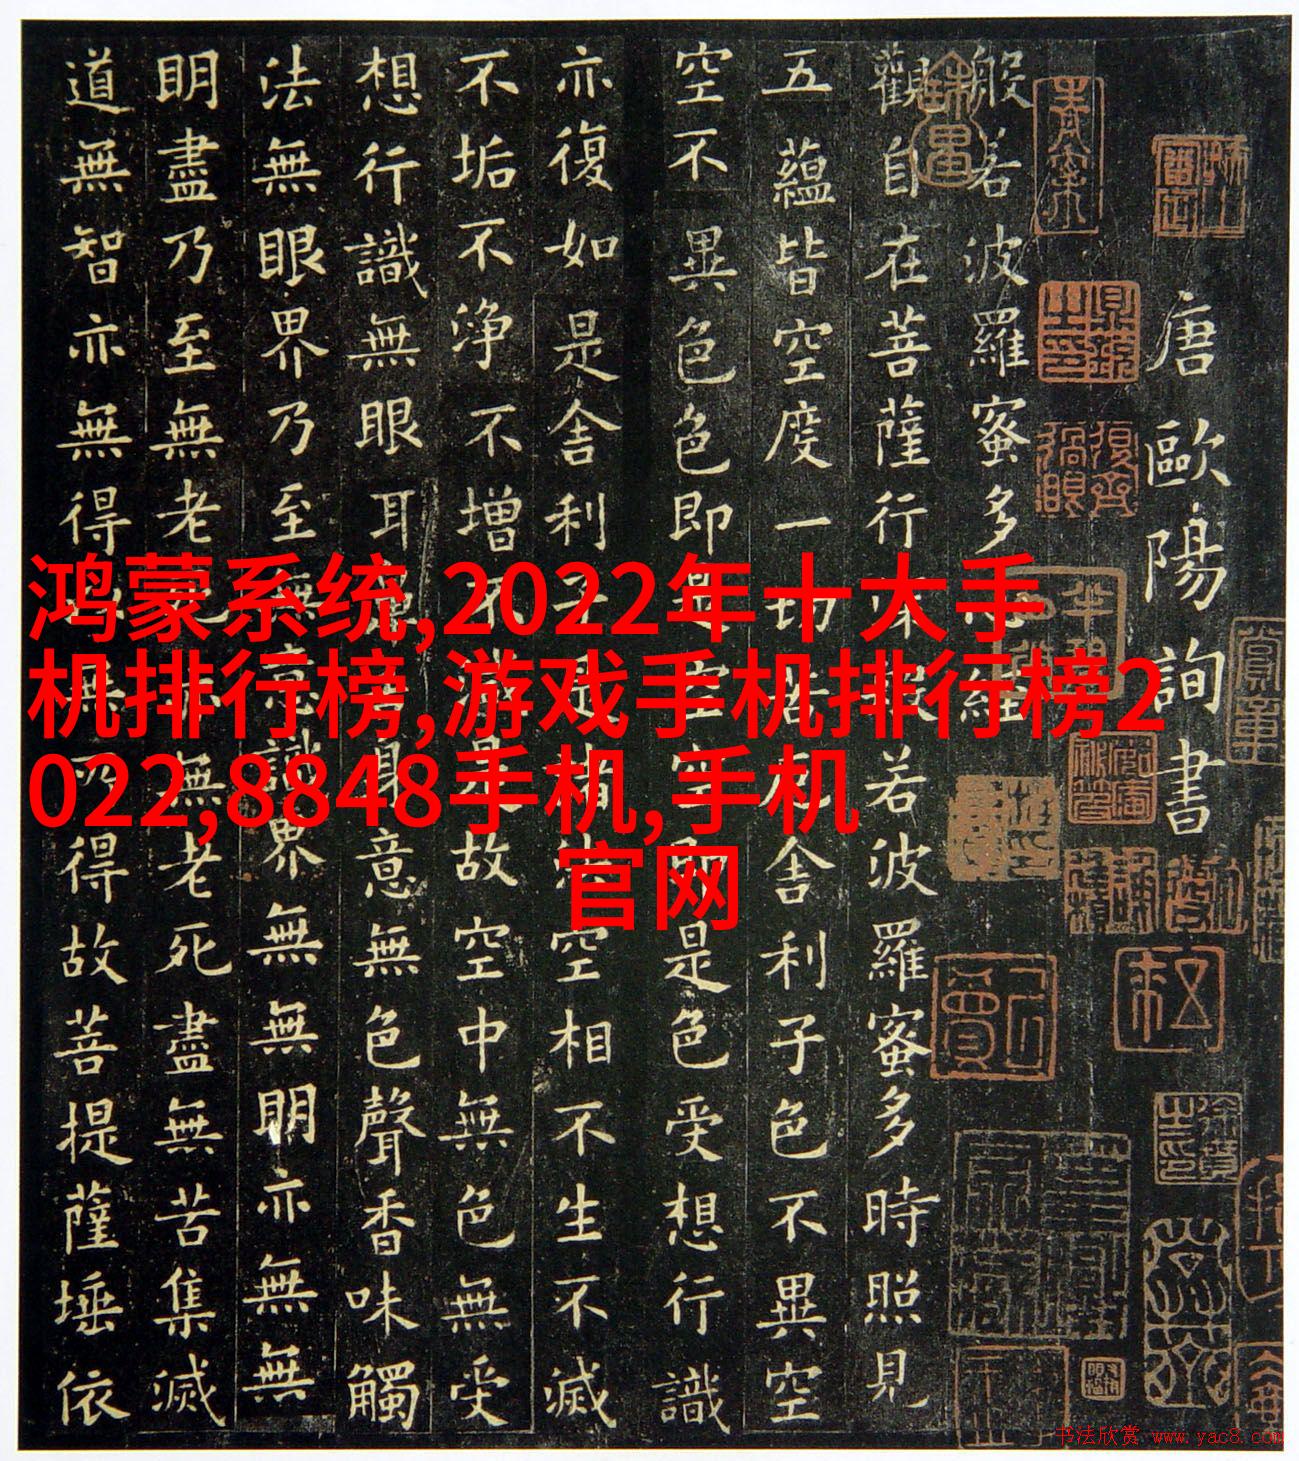 唐歐陽詢書
般若波羅蜜多心經
觀自在菩薩行深般若波羅蜜多時照見
五蘊皆空度一切苦厄舍利子色不異空
空不異色色即是空空即是色受想行識
亦復如是舍利子是諸法空相不生不滅
不垢不淨不增不減是故空中無色無受
想行識無眼耳鼻舌身意無色聲香味觸
法無眼界乃至無意識界無無明亦無無
明盡乃至無老死亦無老死盡無苦集滅
道無智亦無得以無所得故菩提薩埵依
鸿蒙系统,2022年十大手
机排行榜,游戏手机排行榜2
022,8848手机,手机
官网
书法欣赏 www.yac8.com